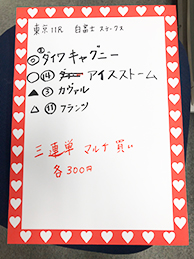 東京11R 白富士ステークス
◎② ダイワキャグニー
○⑭ アイスストーム
▲③ カヴァル
△⑪ フランツ
三連単 マルチ買い
各300円